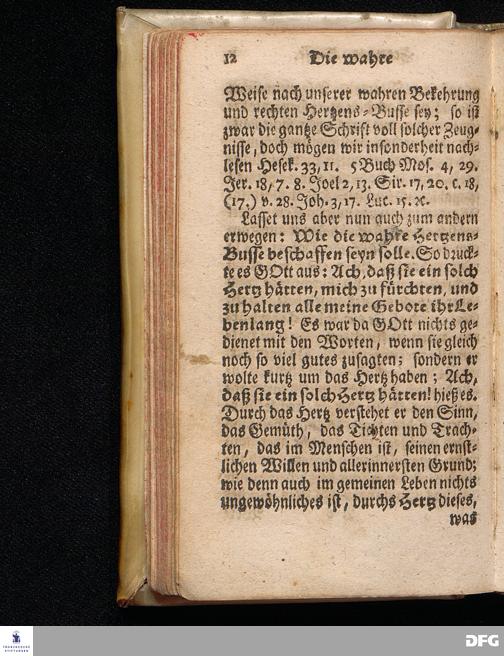 12 Die wahre
Weise nach unserer wahren Bekehrung
und rechten Hertzens-Busse sey; so ist
zwar die gantze Schrift voll solcher Zeug-
nisse, doch mögen wir insonderheit nach-
lesen Hesek. 33, 11. 5 Buch Mos. 4, 29.
Jer. 18, 7. 8. Joel 2, 13. Sir. 17, 20. c. 18,
(17.) v. 28. Joh. 3, 17. Luc. 15. ꝛc.
Lasset uns aber nun auch zum andern
erwegen: Wie die wahre Hertzens-
Busse beschaffen seyn solle. So druck-
te es GOtt aus: Ach, daß sie ein solch
Hertz hätten, mich zu fürchten, und
zu halten alle meine Gebote ihr Le-
benlang! Es war da GOtt nichts ge-
dienet mit den Worten, wenn sie gleich
noch so viel gutes zusagten; sondern er
wolte kurtz um das Hertz haben; Ach,
daß sie ein solch Hertz hätten! hieß es.
Durch das Hertz verstehet er den Sinn,
das Gemüth, das Tichten und Trach-
ten, das im Menschen ist, seinen ernst-
lichen Willen und allerinnersten Grund;
wie denn auch im gemeinen Leben nichts
ungewöhnliches ist, durchs Hertz dieses,
was
FRANCKESCHE
STIFTUNGEN
DFG